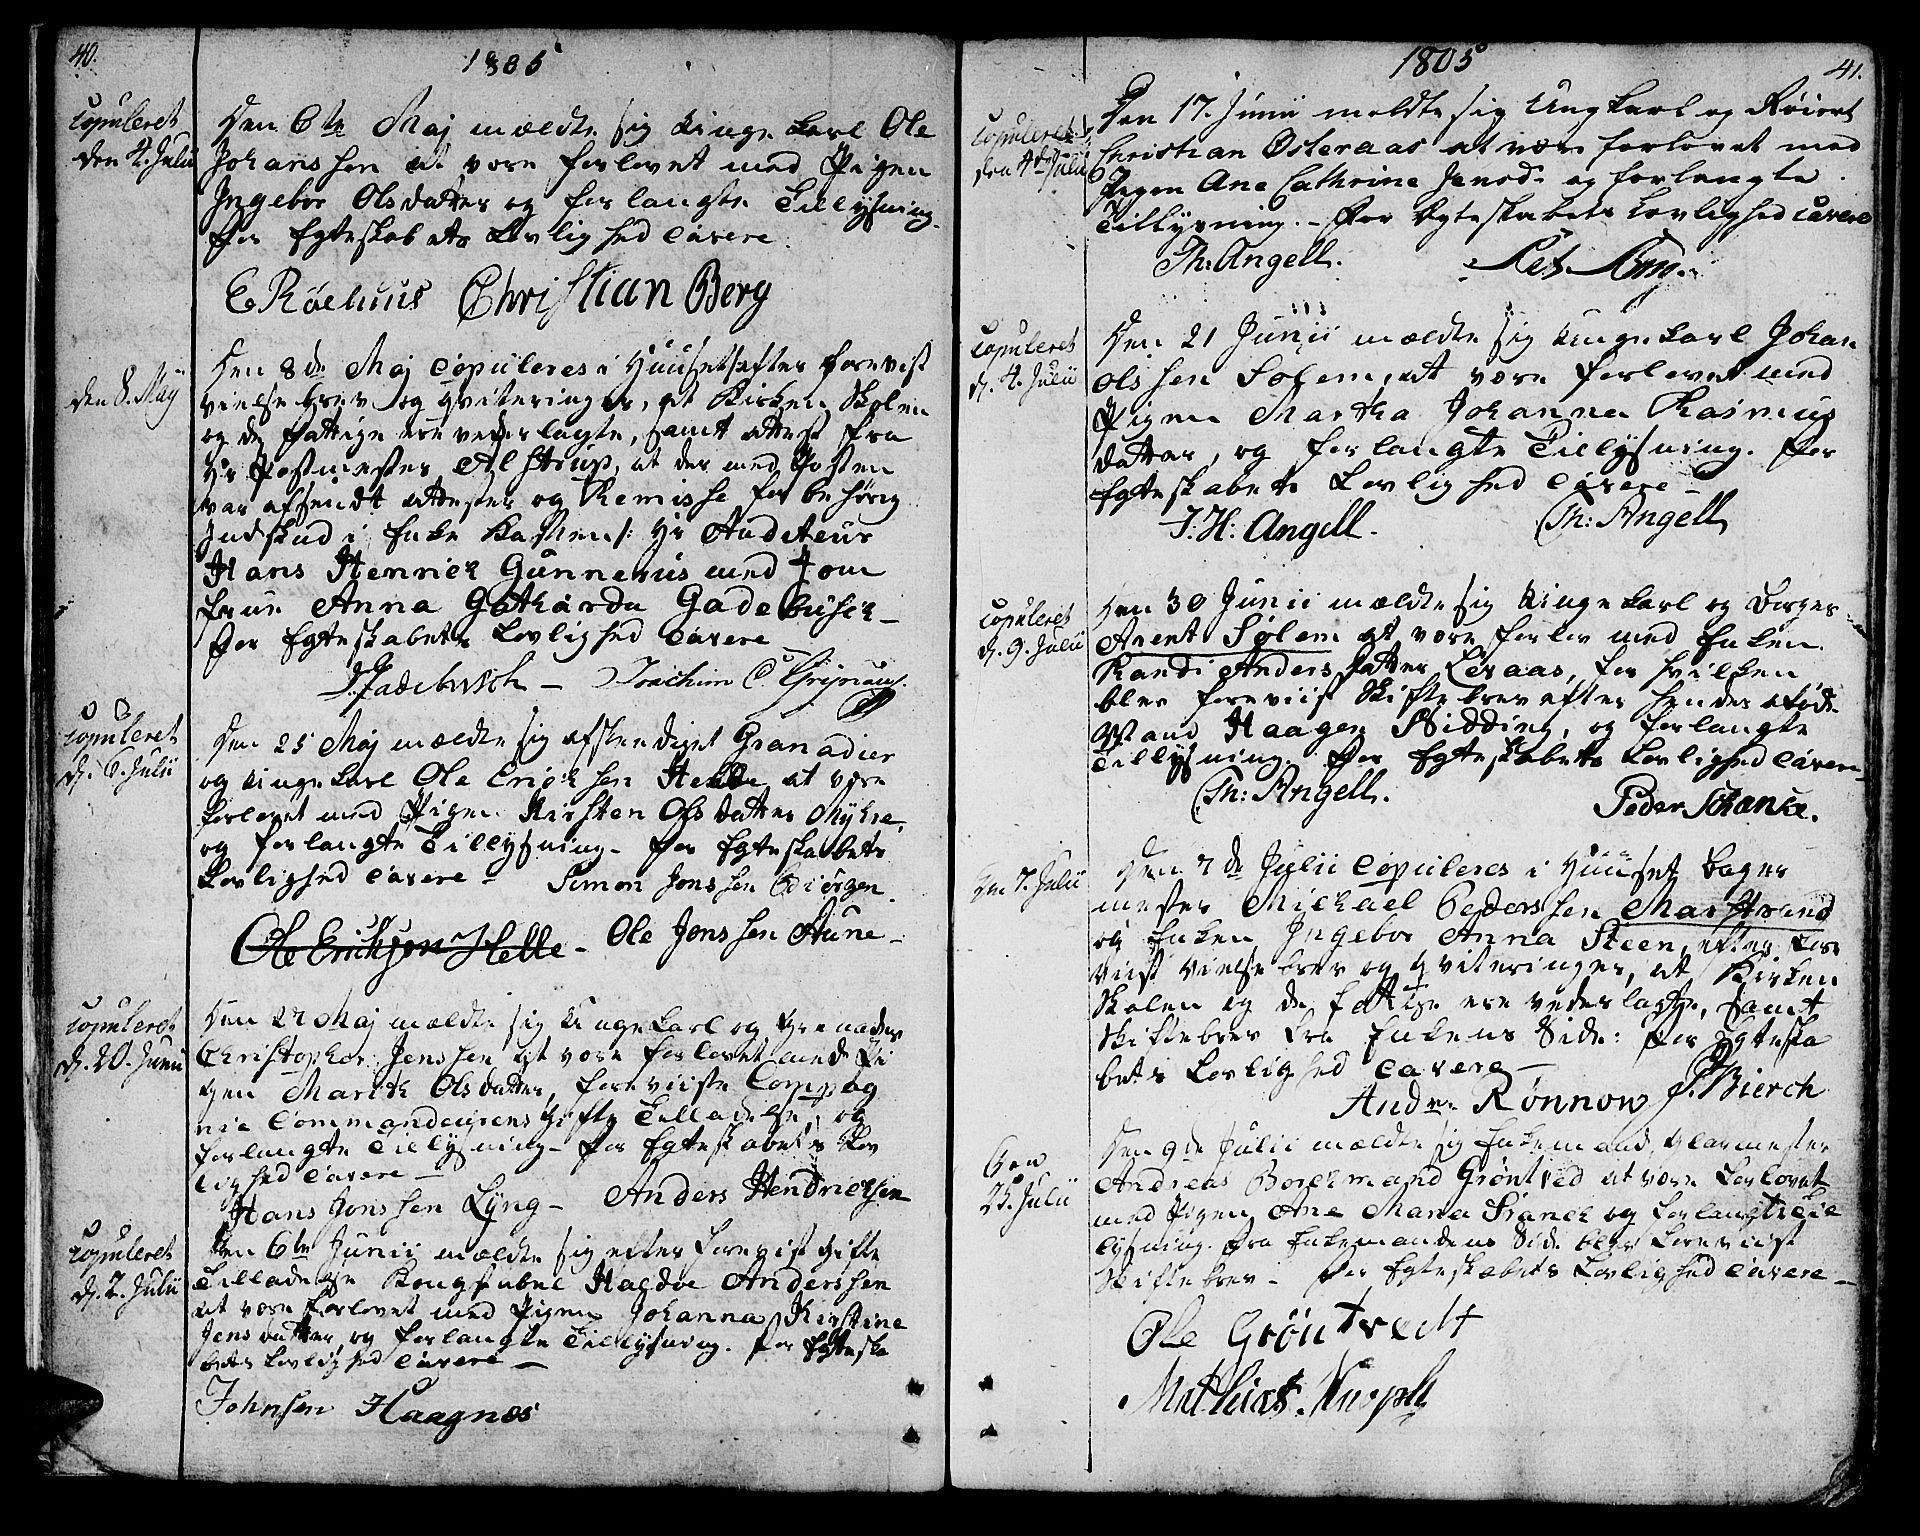 40.
1805
Copuleret
den 4. Julii
Den 6te Maj mældte sig Unge Karl Ole
Johanssen at være forlovet med Pigen
Ingebor Olsdatter og forlangte Tillysning.
For Egteskabets Lovlighed Cavere.
E Röehuus Christian Berg
den 8. Maÿ
Den 8de Maj Copuleres i Huuset efter forevist
vielse brev og qviteringer, at Kirken Skolen
og de fattige ere vederlagte, samt attest fra
Hr Postmester Alstrup, at der med Posten
var afsendt attester og Remisse for behörig
Indskud i Enke Kassen: Hr Auditeur
Hans Henrich Gunnerus med Jom
frue Anna Gotharda Gadebusch
For Egteskabets Lovlighed Cavere
J Gadebusch - Joachim C.
Copuleret
d. 6. Julii
Den 25 Maj mældte sig afskediget Granadier
og unge Karl Ole Erichsen Helle at være
forlovet med Pigen Kirsten Olsdatter Myhre,
og forlangte Tillysning - For Egteskabets
Lovlighed Cavere - Simon Jonssen Ediörgen.
Ole Erichsen Helle - Ole Jonssen Aune -
Copuleret
d. 20. Junii
Den 27 Maj mældte sig Unge Karl og Grenader
Christopher Jenssen at være forlovet med Pi
gen Marith Olsdatter, foreviiste Compag
nie Commandeurens Gifte Tilladelse, og
forlangte Tillysning - For Egteskabets Lov
lighed Cavere -
Hans Jonssen Lyng - Anders Hendrichsen
Copuleret
d. 2. Julii
Den 6te Junii mældte sig efter forevist Gifte
Tilladelse Haldoe Anderssen
at være forlovet med Pigen Johanna Kirstine
Jensdatter, og forlangte Tillysning. For Egteska
bets Lovlighed Cavere -
Johnsen Haagnæs
41.
1805
Copuleret
den 4de Julii
Den 17. Junii meldte sig Ungkarl og
Christian Österaas at være forlovet med
Pigen Ane Cathrine Jensd. og forlangte
Tillysning. - For Egteskabets Lovlighed Cavere
Th: Angell.
Copuleret
d. 4. Julii
Den 21 Junii mældte sig Unge Karl Johan
Olssen Solem, at være forlovet med
Pigen Martha Johanna Rasmus
datter, og forlangte Tillysning. For
Egteskabets Lovlighed Cavere -
J. H: Angell. Th: Angell
Copuleret
d. 9. Julii
Den 30 Junii mældte sig Unge Karl og Borger
Arent Solem at være forlov med Enken
Randi Andersdatter Leraas, for hvilken
blev foreviist Skiftebrev efter hendes afdöde
Mand Haagen Hidding, og forlangte
Tillysning. For Egteskabets Lovlighed Cavere -
Th: Angell. Peder Schanke.
den 7. Julii
Den 7de Julii Copuleres i Huuset Bager
mester Mickael Pederssen Marstrand
og Enken Ingebor Anna Steen, efter fore
viist vielse brev og qviteringer, at Kirken
Skolen og de fattige ere vederlagte, samt
Skiftebrev fra Enkens Side: For Egteska
bets Lovlighed Cavere -
And: Rönnow P. Bierch
den
25. Julii
Den 9de Julii mældte sig Enkemand, Glarmester
Andreas Borchmand Gröntved at være forlovet
med Pigen Ane Maria Franck og forlangte Til
lysning. Fra Enkemandens Side blev foreviist
Skiftebrev - For Egteskabets Lovlighed Cavere -
Ole Gröntvedt
Mathias